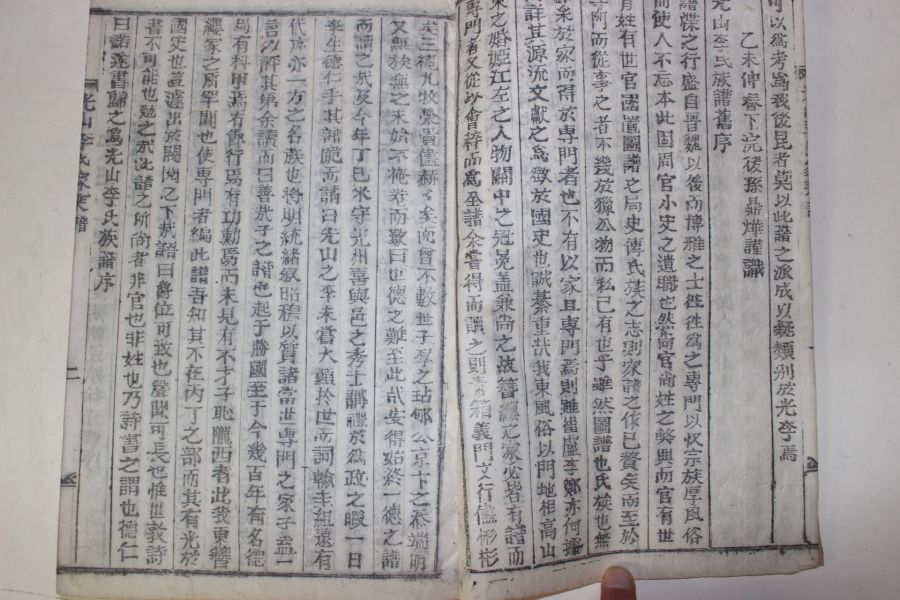 可以爲者爲我後昆者莫以此譜之派成以疑類別於光李焉
乙未仲春下浣後孫鼎燁謹識
光山李氏族譜舊序
譜牒之行盛自晉魏以後而博雅之士徃徃爲之專門以收宗族厚風俗
而使人不忘本此固周官小史之遺職也然尙官尙姓之弊興而官有世
官姓有世官國置圖譜之局史傳氏族之志則家譜之作已贅矣而至於
而從事之者不幾於獵公物而私已有也乎雖然圖譜也氏族也無
采於家而得於專門者也不有以家且專門焉則雖崔盧李鄭亦何據
詳其源流文獻之爲徵於國史也誠綦重哉我東風俗以門地相高山
東之婚姻江左之人物關中之冠冕盖兼尙之故簪纓之家必皆有譜而
專門者又從以會稡而爲全譜余嘗得而讀之則靑箱義門文行儘彬彬
矣三槐九牧榮貴儘赫々矣而曾不數世子學之玷邠公京卞之忝端明
又無族無之未始不掩卷而歎曰世德之難至此哉安得始終一德之譜
而讀之哉及今年丁巳米守光州喜與邑之秀士講禮於爲政之暇一日
李生德仁手其譜䟽而請曰光山之李未嘗大顯於世而詞翰圭組還有
代序亦一方之名族也將明統緖叙昭穆以質諸當世專門之家子盍一
語以評其第余讀而曰善哉子之譜也起于勝國至于今幾百年有名德
焉有科甲焉有節行焉有功勳焉而未見有不才子耻隴西者此我東簪
纓家之所罕聞也使專門者編此譜吾知其不在丙丁之部而其有光於
國史也豈遽出於閥閱之下哉語曰爵位可致也聲聞可長也惟世敦詩
書不可能也勉之哉此譜之所尙者非官也非姓也乃詩書之謂也德仁
曰諾遂書歸之爲光山李氏族譜序
光山李氏家乘譜
二